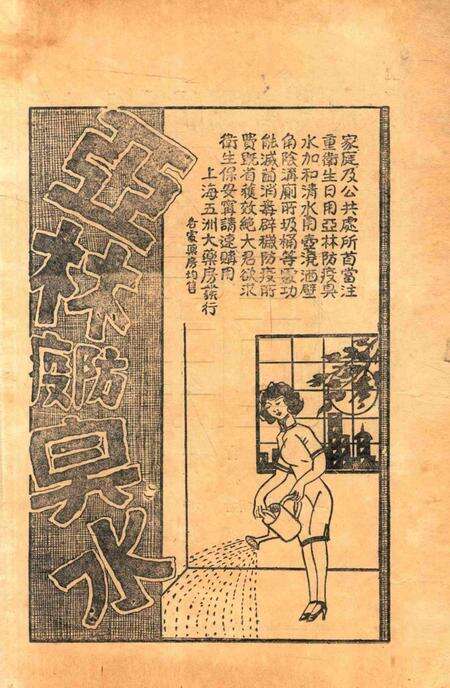 家庭及公共處所首當注
重衛生日用亞林防疫臭
水加和清水用壺澆洒壁
角陰溝厠所圾桶等處功
能滅菌消毒辟穢防疫所
費旣省獲效絶大君欲求
衛生保安寧請淀購用
上海五洲大藥房發行
各處藥房均售
亞林防疫臭水